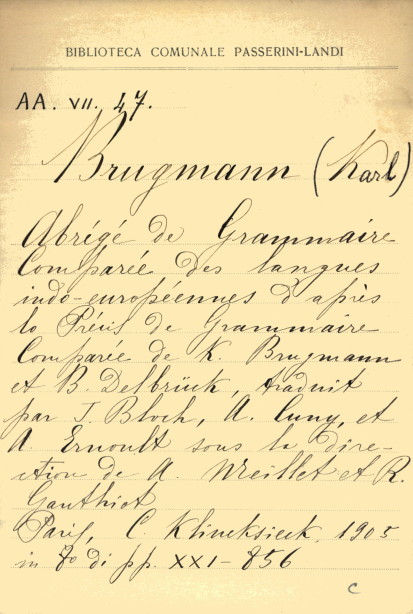 BIBLIOTECA COMUNALE PASSERINI-LANDI
AA. VII. 47.
Brugmann (Karl)
Abrégé de Grammaire
Comparée des langues
indo-européennes d'après
lo Précis de Grammaire
Comparée de K. Brugmann
et B. Delbrück, traduit
par J. Bloch, A. Cuny, et
A. Ernoult sous la dire-
ction de A. Meillet et R.
Gauthiot
Paris, C. Klincksieck, 1905
in 8º di pp. XXI-856
C